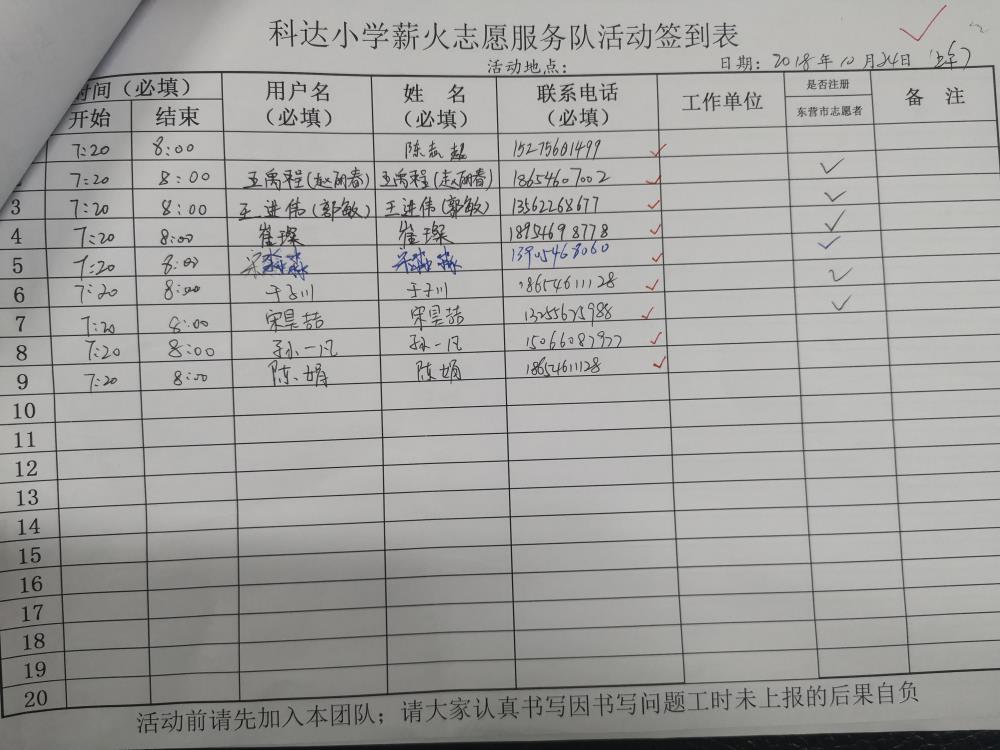 科达小学薪火志愿服务队活动签到表
活动地点： 日期：2018年10月24日（上午）
时间（必填） 用户名（必填） 姓 名（必填） 联系电话（必填） 工作单位 是否注册东营市志愿者 备 注
开始 结束
7:20 8:00 陈志超 15275601499
7:20 8:00 王禹程(赵丽春) 王禹程(赵丽春) 18654607002
3 7:20 8:00 王进伟(郭敏) 王进伟(郭敏) 13562268677
4 7:20 8:00 崔璨 崔璨 18954698778
5 7:20 8:00 宋淼淼 宋淼淼 13905468060
6 7:20 8:00 于子川 于子川 18654611128
7 7:20 8:00 宋昊喆 宋昊喆 13255625988
8 7:20 8:00 孙一凡 孙一凡
9 7:20 8:00 陈娟 陈娟 18654611128
10
11
12
13
14
15
16
17
18
19
20
活动前请先加入本团队；请大家认真书写因书写问题工时未上报的后果自负